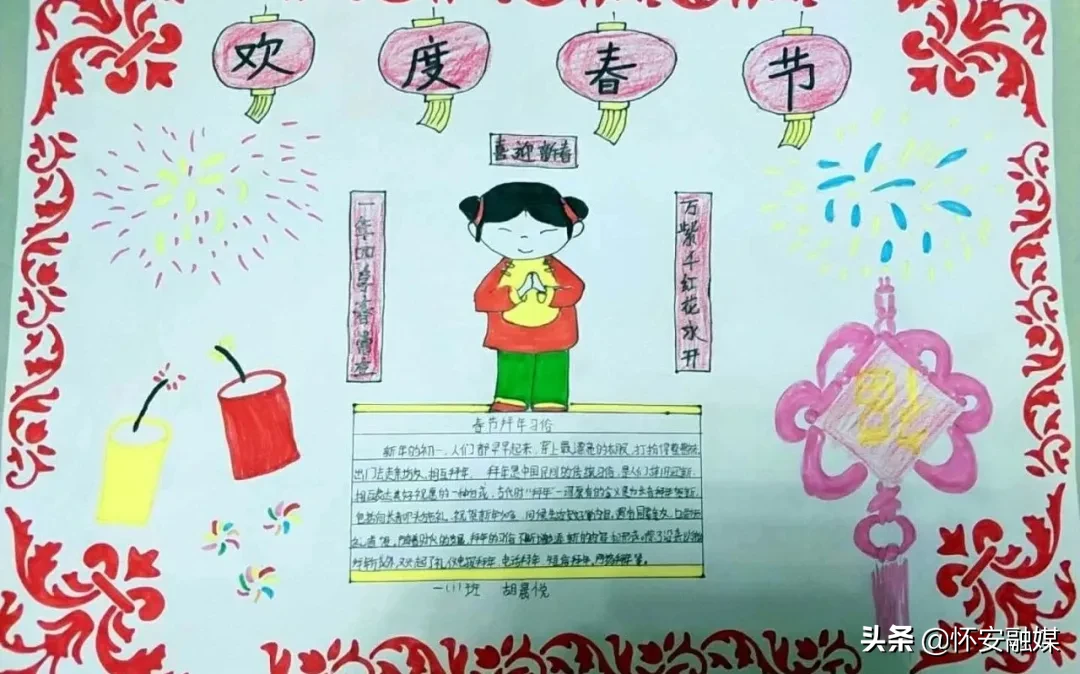 欢度春节
喜迎新春
一年四季春常在
万紫千红花永开
春节拜年习俗
新年的初一，人们都早早起来，穿上最漂亮的衣服，打扮得整整齐齐，
出门去走亲访友，相互拜年。拜年是中国民间的传统习俗，是人们辞旧迎新、
相互表达美好祝愿的一种方式。古代时"拜年"一词原有的含义是为长者拜贺新年，
包括向长者叩头施礼、祝贺新年如意、问候生活安好等内容，遇有同辈亲友，也要施
礼道贺。随着时代的发展，拜年的习俗不断增添新的内容和形式。除了沿袭以往的
拜年方式外，又兴起了礼仪电报拜年、电话拜年、短信拜年、网络拜年等。
一(1)班 胡晨悦
头条 @怀安融媒